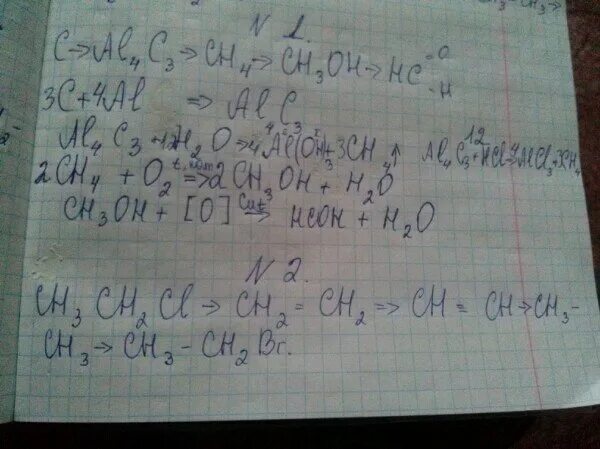 N 1.
C → Al₄C₃ → CH₄ → CH₃OH → HC=O
-H
3C + 4Al ⇒ Al₄C₃
Al₄C₃ + 12H₂O → 4Al(OH)₃ + 3CH₄↑ Al₄C₃ + 12HCl → 4AlCl₃ + 3CH₄
2CH₄ + O₂ t, кат ⇒ 2CH₃OH + H₂O
CH₃OH + [O] Cu,t ⇒ HCOH + H₂O
N 2.
CH₃ CH₂ Cl → CH₂ = CH₂ ⇒ CH ≡ CH → CH₃-
CH₃ → CH₃ - CH₂Br.